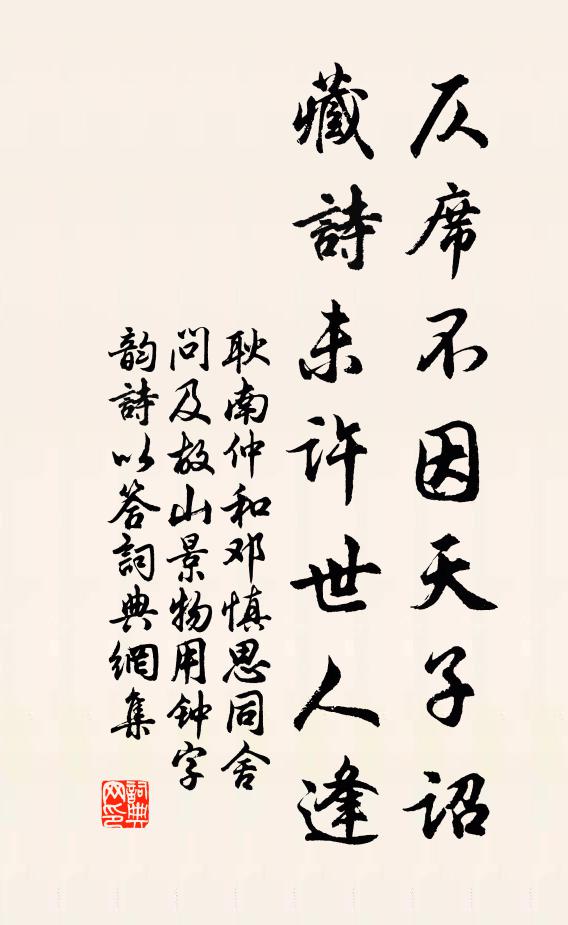 仄席不因天子詔
藏詩未許世人逢
耿南仲和邓慎思同舍
問及故山景物用钟字
韵詩以答詞典網集
詞典
网印